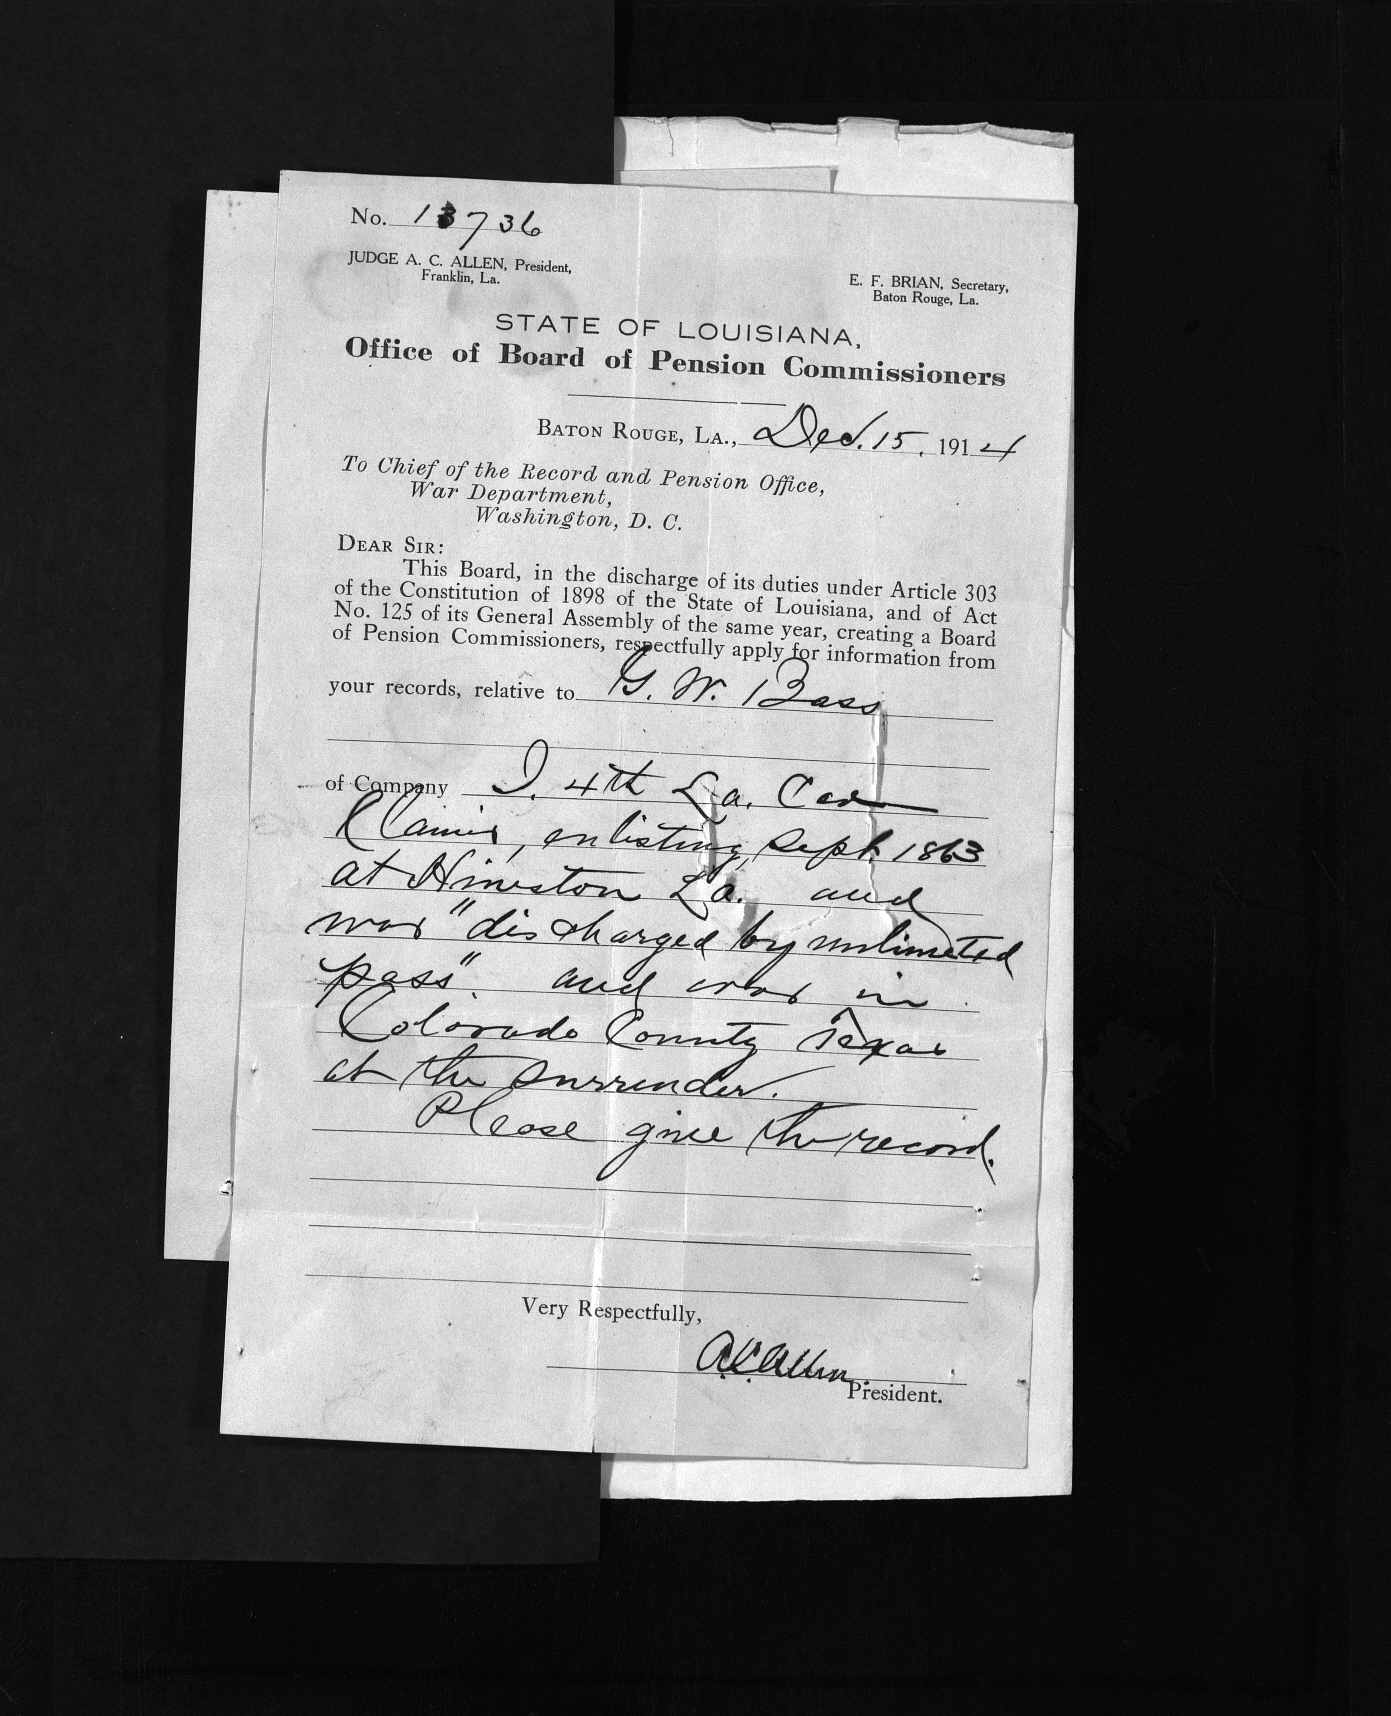 No. 13736
JUDGE A. C. ALLEN, President,
Franklin, La.
E. F. BRIAN, Secretary,
Baton Rouge, La.
STATE OF LOUISIANA,
Office of Board of Pension Commissioners
BATON ROUGE, LA., Dec. 15, 1914
To Chief of the Record and Pension Office,
War Department,
Washington, D. C.
DEAR SIR:
This Board, in the discharge of its duties under Article 303
of the Constitution of 1898 of the State of Louisiana, and of Act
No. 125 of its General Assembly of the same year, creating a Board
of Pension Commissioners, respectfully apply for information from
your records, relative to G. W. Bass
of Company I. 4th La. Cav
Claims, enlisting, Sept. 1863
at Hineston La. and
was "discharged by unlimited
pass" and was in
Colorado County Texas
at the surrender.
Please give the record.
Very Respectfully,
A. C. Allen
President.